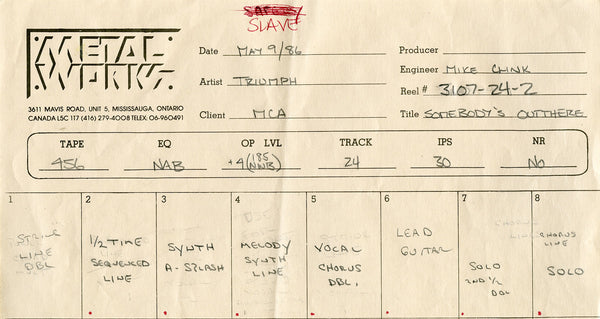 SAFETY
SLAVE
METAL
WORKS
3611 MAVIS ROAD, UNIT 5, MISSISSAUGA, ONTARIO
CANADA L5C 1T7 (416) 279-4008 TELEX: 06-960491
Date MAY 9/86
Artist TRIUMPH
Client MCA
Producer
Engineer MIKE CLINK
Reel # 3107-24-2
Title SOMEBODY'S OUT THERE
TAPE EQ OP LVL TRACK IPS NR
456 NAB +4 (185 NWB) 24 30 No
1 2 3 4 5 6 7 8
STRING
LINE
DBL
1/2 TIME
SEQUENCED
LINE
SYNTH
A-SPLASH
MELODY
SYNTH
LINE
VOCAL
CHORUS
DBL.
LEAD
GUITAR
CHORUS
LINE
SOLO
2ND 1/2
DBL
CHORUS
LINE
SOLO